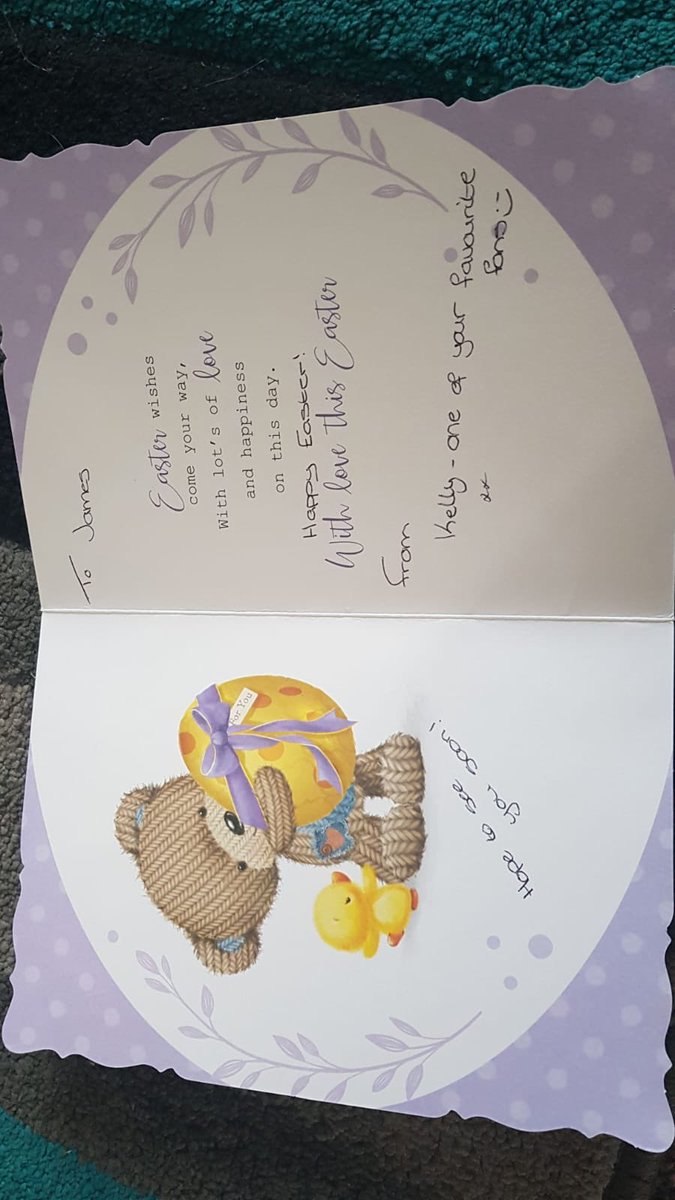 For You
Hope to see you soon!
To James
Easter wishes
come your way,
With lot's of love
and happiness
on this day.
Happy Easter!
With love this Easter
from
Kelly - one of your favourite
fans :-)
xx